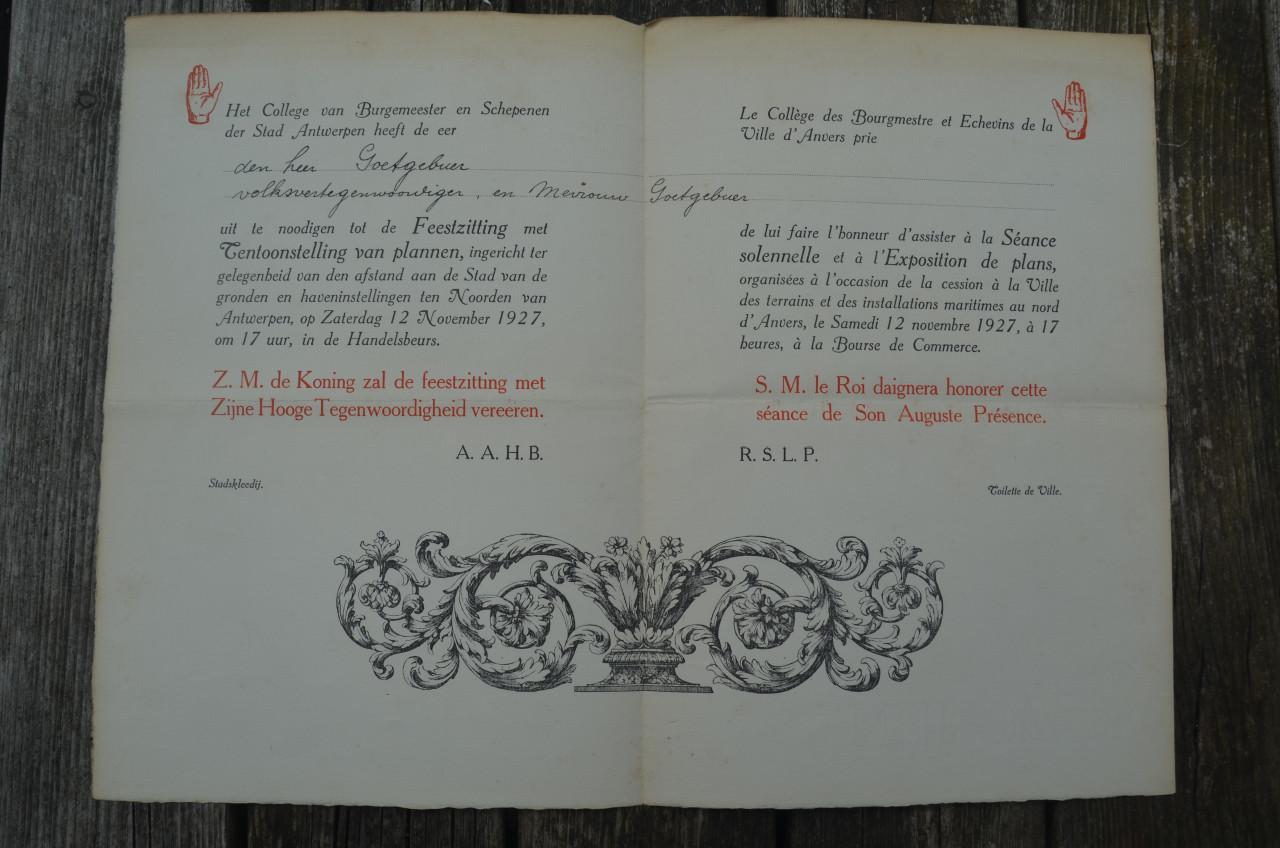 Het College van Burgemeester en Schepenen
der Stad Antwerpen heeft de eer
den heer Goetgebuer
volksvertegenwoordiger, en Mevrouw Goetgebuer
uit te noodigen tot de Feestzitting met
Tentoonstelling van plannen, ingericht ter
gelegenheid van den afstand aan de Stad van de
gronden en haveninstellingen ten Noorden van
Antwerpen, op Zaterdag 12 November 1927,
om 17 uur, in de Handelsbeurs.
Z. M. de Koning zal de feestzitting met
Zijne Hooge Tegenwoordigheid vereëren.
A. A. H. B.
Stadskleedij.
Le Collège des Bourgmestre et Echevins de la
Ville d'Anvers prie
de lui faire l'honneur d'assister à la Séance
solennelle et à l'Exposition de plans,
organisées à l'occasion de la cession à la Ville
des terrains et des installations maritimes au nord
d'Anvers, le Samedi 12 novembre 1927, à 17
heures, à la Bourse de Commerce.
S. M. le Roi daignera honorer cette
séance de Son Auguste Présence.
R. S. L. P.
Toilette de Ville.